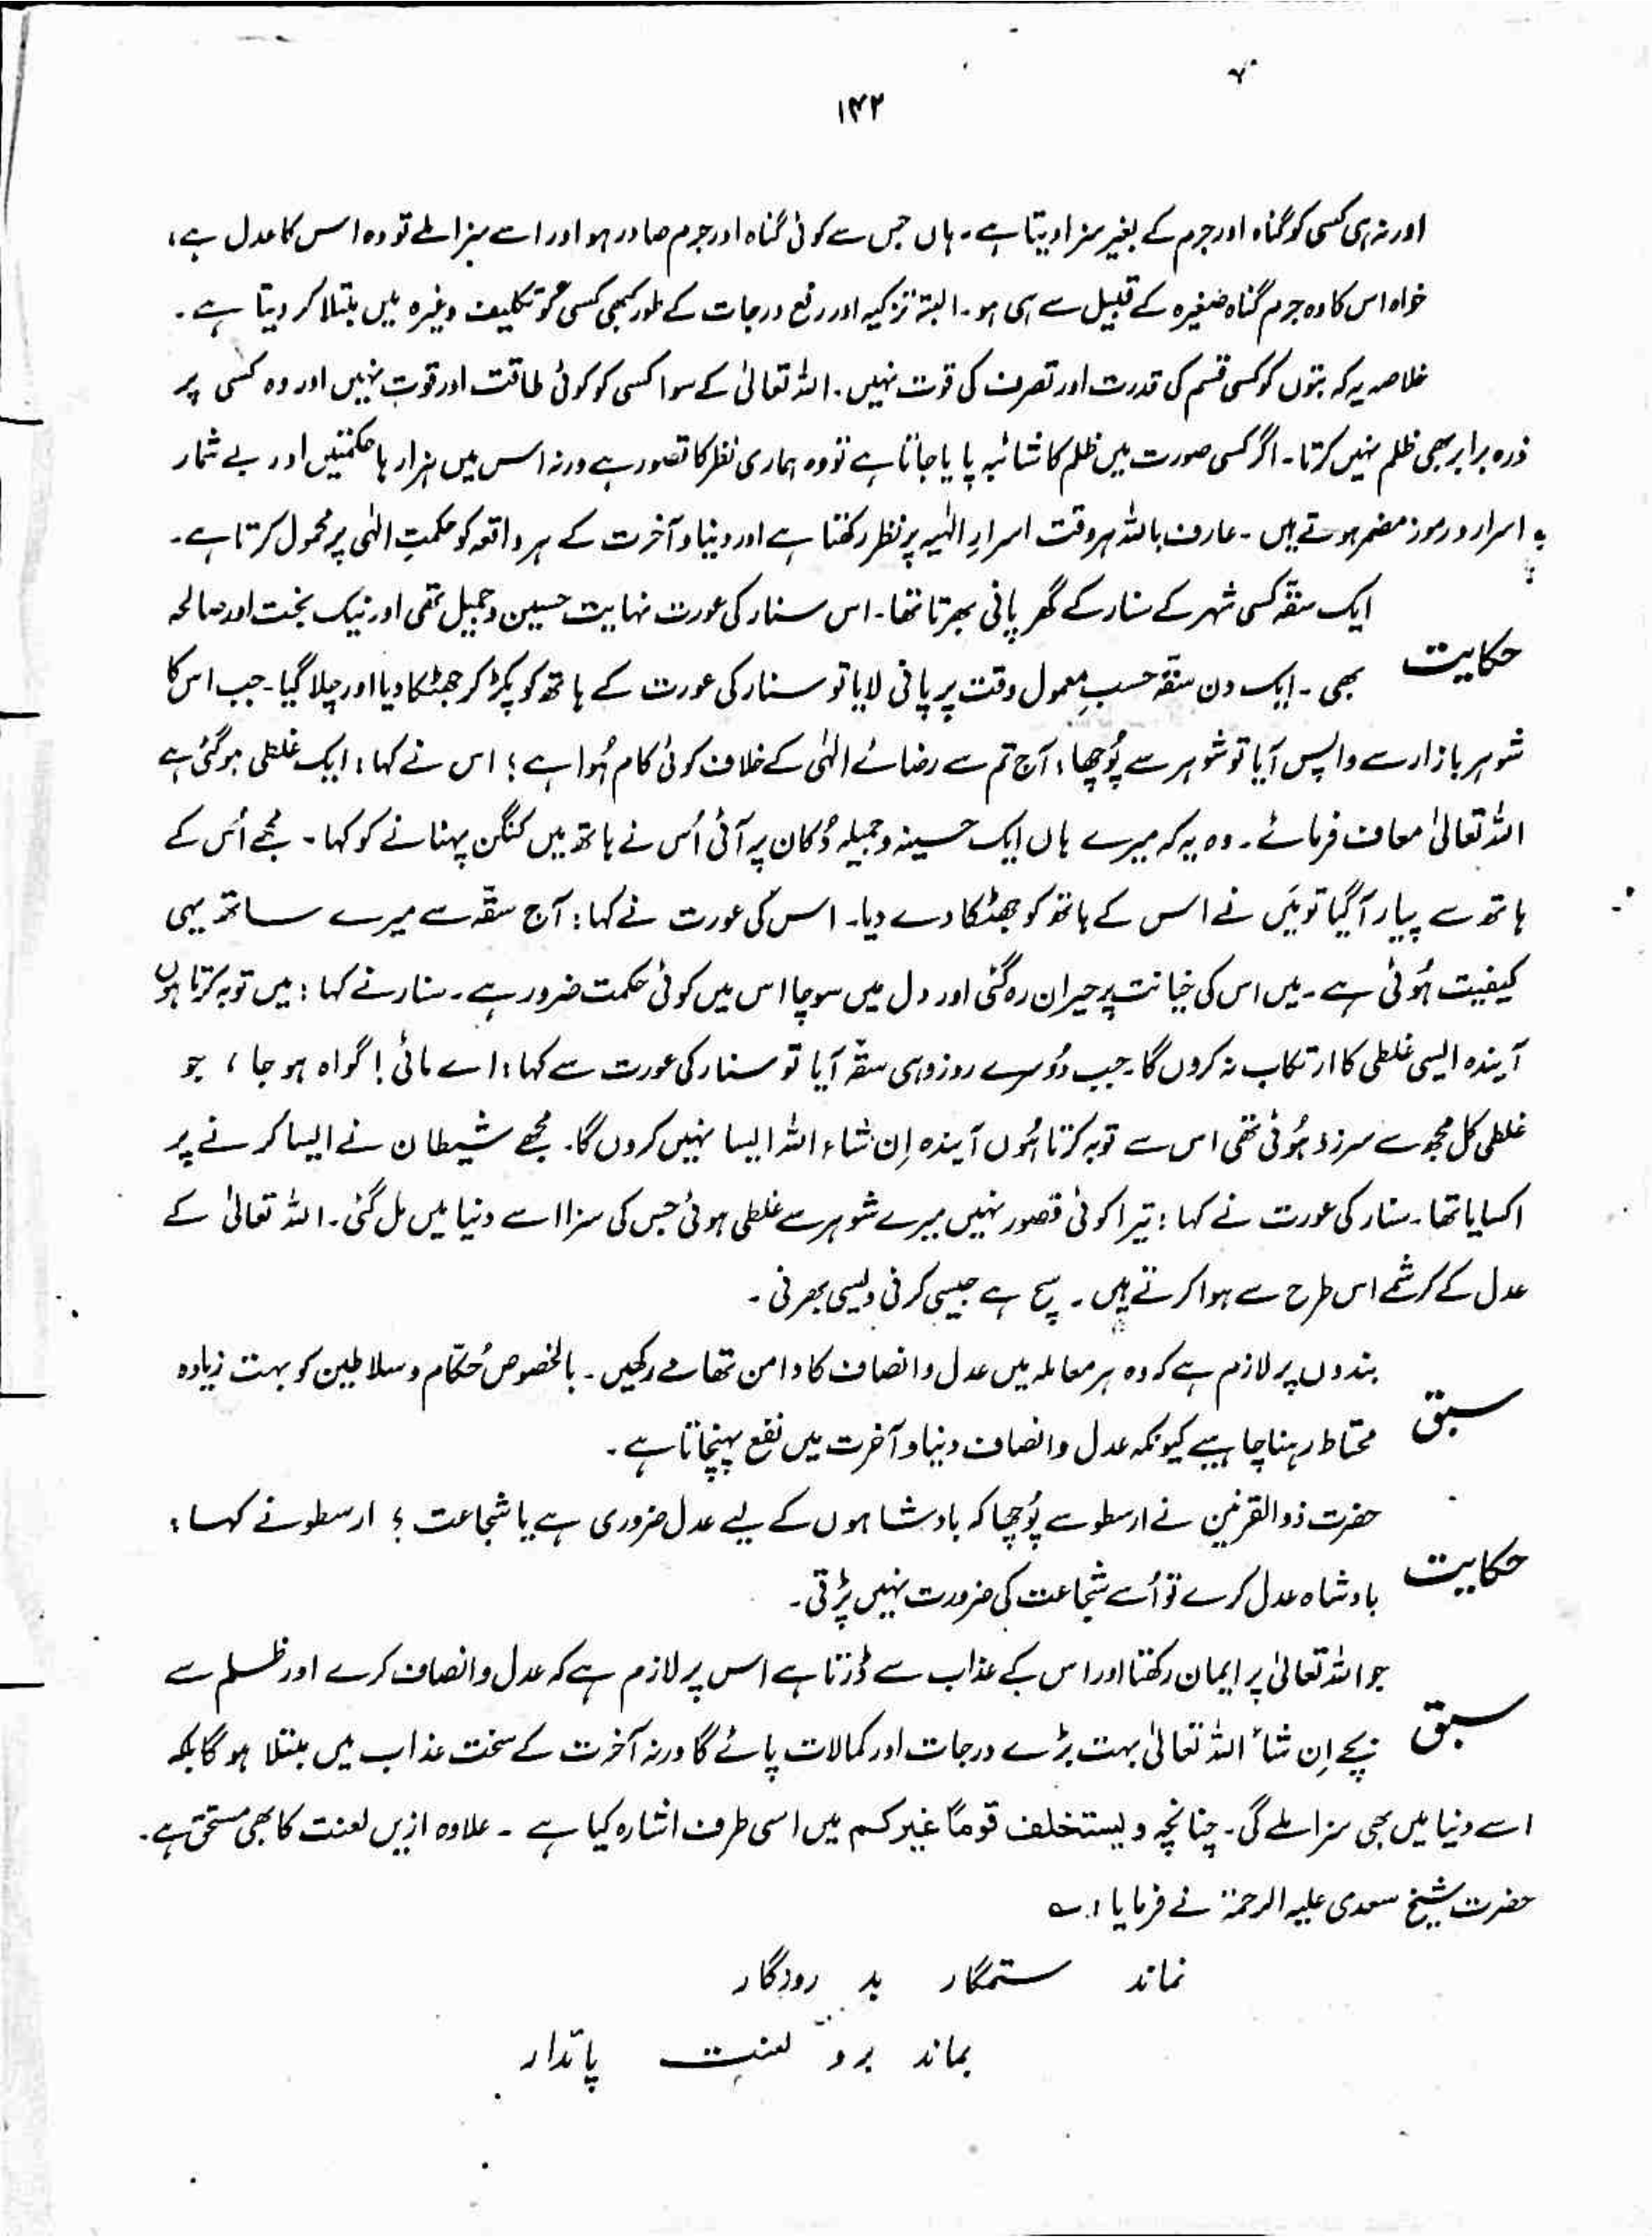 ۱۴۲
اور نہ ہی کسی کو گناہ اور جرم کے بغیر سزا دیتا ہے۔ ہاں جس سے کوئی گناہ اور جرم صادر ہو اور اسے سزا ملے تو وہ اس کا عدل ہے،
خواہ اس کا وہ جرم گناہ صغیرہ کے قبیل سے ہی ہو۔ البتہ تزکیہ اور رفع درجات کے طور کبھی کسی کو تکلیف وغیرہ میں مبتلا کر دیتا ہے۔
خلاصہ یہ کہ بتوں کو کسی قسم کی قدرت اور تصرف کی قوت نہیں۔ اللہ تعالیٰ کے سوا کسی کو کوئی طاقت اور قوت نہیں اور وہ کسی پر
ذرہ برابر بھی ظلم نہیں کرتا۔ اگر کسی صورت میں ظلم کا شائبہ پایا جاتا ہے تو وہ ہماری نظر کا قصور ہے ورنہ اس میں ہزارہا حکمتیں اور بے شمار
اسرار و رموز مضمر ہوتے ہیں۔ عارف باللہ ہر وقت اسرارِ الٰہیہ پر نظر رکھتا ہے اور دنیا و آخرت کے ہر واقعہ کو حکمتِ الٰہی پر محمول کرتا ہے۔
ایک سقّہ کسی شہر کے سنار کے گھر پانی بھرتا تھا۔ اس سنار کی عورت نہایت حسین و جمیل تھی اور نیک بخت اور صالحہ
حکایت بھی۔ ایک دن سقّہ حسبِ معمول وقت پر پانی لایا تو سنار کی عورت کے ہاتھ کو پکڑ کر جھٹکا دیا اور چلا گیا۔ جب اس کا
شوہر بازار سے واپس آیا تو شوہر سے پُوچھا: آج تم سے رضائے الٰہی کے خلاف کوئی کام ہُوا ہے؟ اس نے کہا: ایک غلطی ہو گئی ہے
اللہ تعالیٰ معاف فرمائے۔ وہ یہ کہ میرے ہاں ایک حسینہ و جمیلہ دُکان پر آئی اُس نے ہاتھ میں کنگن پہنانے کو کہا۔ مجھے اُس کے
ہاتھ سے پیار آگیا تو میَں نے اس کے ہاتھ کو جھٹکا دے دیا۔ اس کی عورت نے کہا: آج سقّہ سے میرے ساتھ یہی
کیفیت ہُوئی ہے۔ میں اس کی خیانت پر حیران رہ گئی اور دل میں سوچا اس میں کوئی حکمت ضرور ہے۔ سنار نے کہا: میں توبہ کرتا ہوں
آیندہ ایسی غلطی کا ارتکاب نہ کروں گا۔ جب دُوسرے روز وہی سقّہ آیا تو سنار کی عورت سے کہا: اے مائی! گواہ ہو جا، جو
غلطی کل مجھ سے سرزد ہُوئی تھی اس سے توبہ کرتا ہُوں آیندہ اِن شاء اللہ ایسا نہیں کروں گا۔ مجھے شیطان نے ایسا کرنے پر
اکسایا تھا۔ سنار کی عورت نے کہا: تیرا کوئی قصور نہیں میرے شوہر سے غلطی ہوئی جس کی سزا اسے دنیا میں مل گئی۔ اللہ تعالیٰ کے
عدل کے کرشمے اس طرح سے ہوا کرتے ہیں۔ سچ ہے جیسی کرنی ویسی بھرنی۔
بندوں پر لازم ہے کہ وہ ہر معاملہ میں عدل و انصاف کا دامن تھامے رکھیں۔ بالخصوص حُکّام و سلاطین کو بہت زیادہ
سبق محتاط رہنا چاہیے کیونکہ عدل و انصاف دنیا و آخرت میں نفع پہنچاتا ہے۔
حضرت ذوالقرنین نے ارسطو سے پُوچھا کہ بادشاہوں کے لیے عدل ضروری ہے یا شجاعت؟ ارسطو نے کہا:
حکایت بادشاہ عدل کرے تو اُسے شجاعت کی ضرورت نہیں پڑتی۔
جو اللہ تعالیٰ پر ایمان رکھتا اور اس کے عذاب سے ڈرتا ہے اس پر لازم ہے کہ عدل و انصاف کرے اور ظلم سے
سبق بچے اِن شاءَ اللہ تعالیٰ بہت بڑے درجات اور کمالات پائے گا ورنہ آخرت کے سخت عذاب میں مبتلا ہو گا بلکہ
اسے دنیا میں بھی سزا ملے گی۔ چنانچہ ویستخلف قومًا غیرکم میں اسی طرف اشارہ کیا ہے۔ علاوہ ازیں لعنت کا بھی مستحق ہے۔
حضرت شیخ سعدی علیہ الرحمۃ نے فرمایا: ؎
نماند ستمگار بد روزگار
بماند برو لعنت پائدار